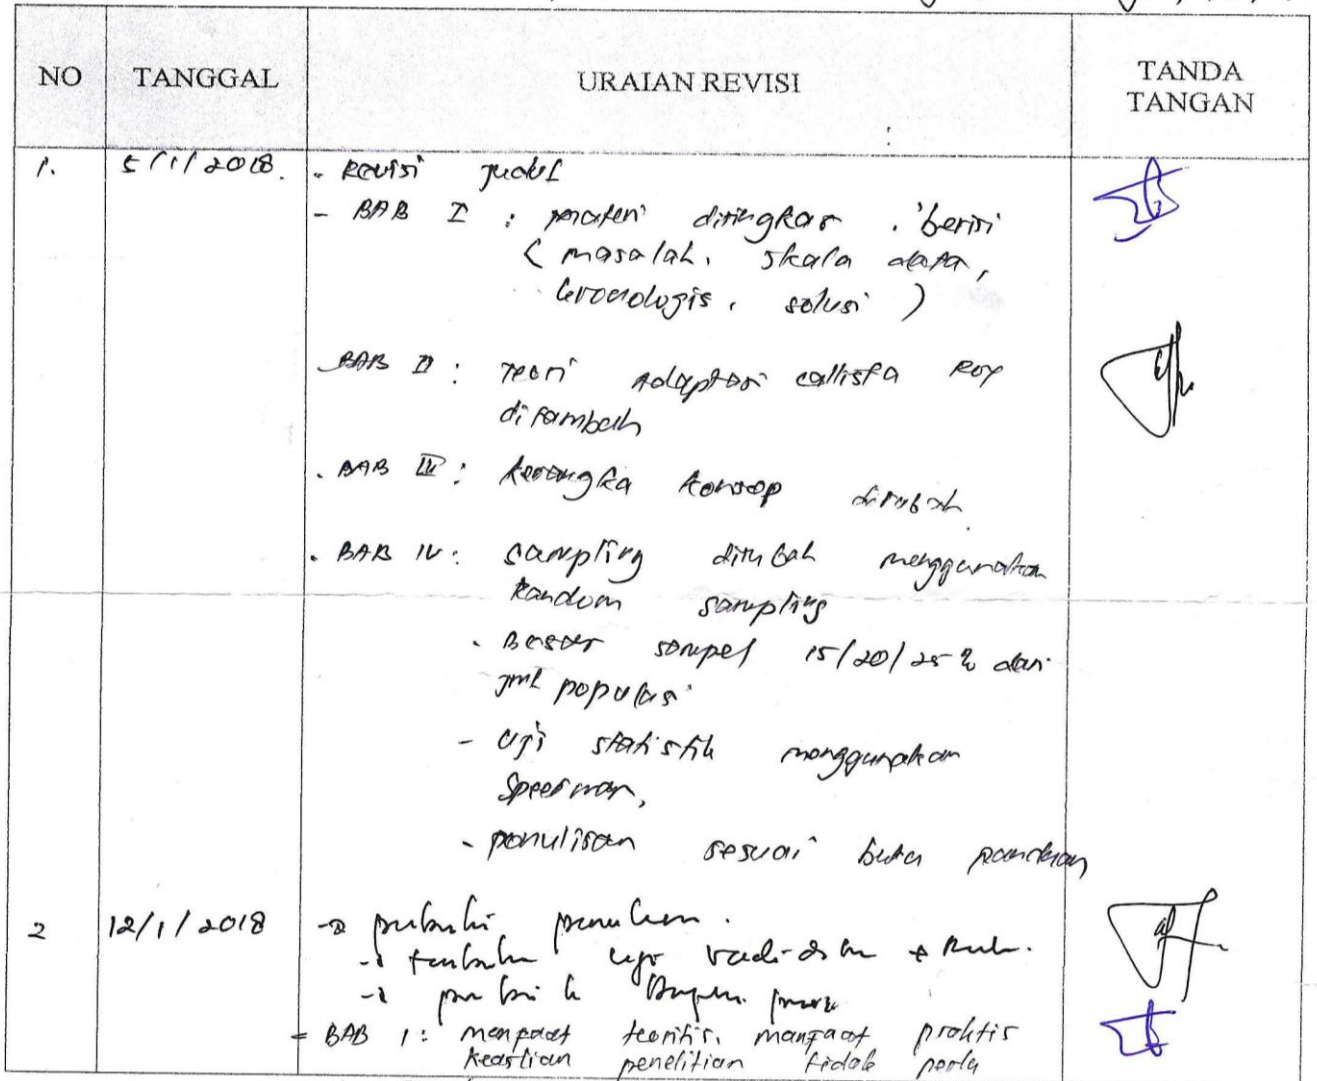 NO TANGGAL URAIAN REVISI TANDA TANGAN
1. 5/1/2018. - Revisi judul
- BAB I : materi diringkas . berisi
( masalah, skala data,
kronologis, solusi )
BAB II : Teori adaptasi callista Roy
ditambah
. BAB III : kerangka konsep dirubah
. BAB IV : sampling dirubah menggunakan
Random sampling
. Besar sampel 15/20/25 % dari
jml populasi
- Uji statistik menggunakan
Speerman,
- penulisan sesuai buku panduan
2 12/1/2018
- BAB 1 : manfaat teoritis, manfaat praktis
keaslian penelitian tidak perlu